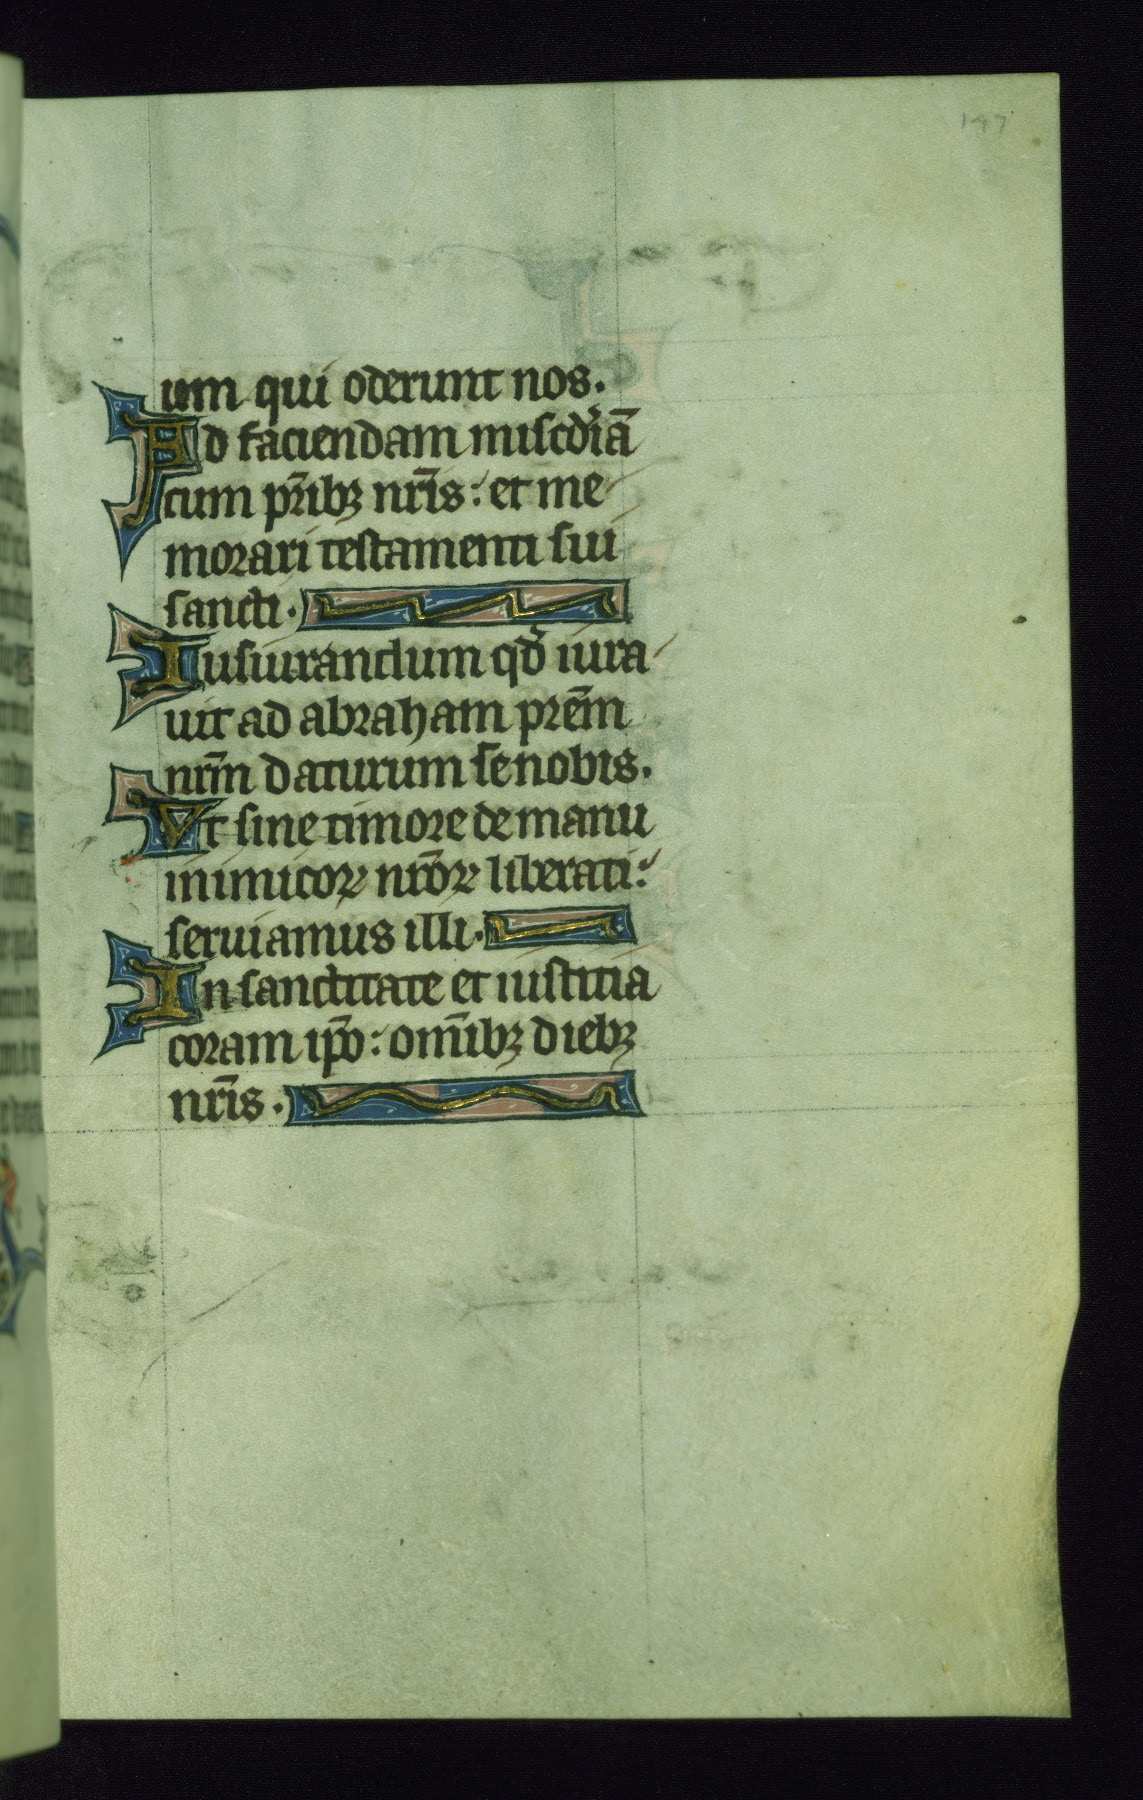 147
um qui oderunt nos.
Ad faciendam miscd̓iā
cum pr̄ibꝫ nr̄is: et me
morari testamenti sui
sancti.
Iusiurandum qd̓ iura
uit ad abraham prēm
nrm̄ daturum se nobis.
Vt sine timore de manu
inimicoꝝ nrōꝝ liberati:
seruiamus illi.
In sanctitate et iustitia
coram ip̄o: om̄ibꝫ diebꝫ
nr̄is.